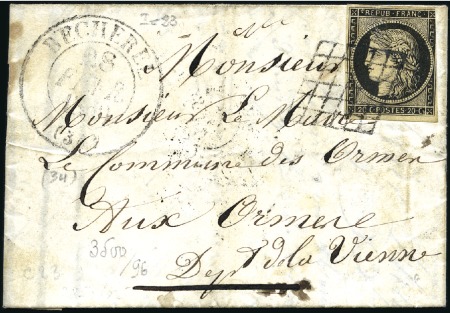 2-23
BÉCHEREL
28
(34)
REPUB. FRANC.
20 C POSTES 20 C
Monsieur
Monsieur Le Maire
La Commune des Ormes
Aux Ormes
3500
/96
Dept de la Vienne